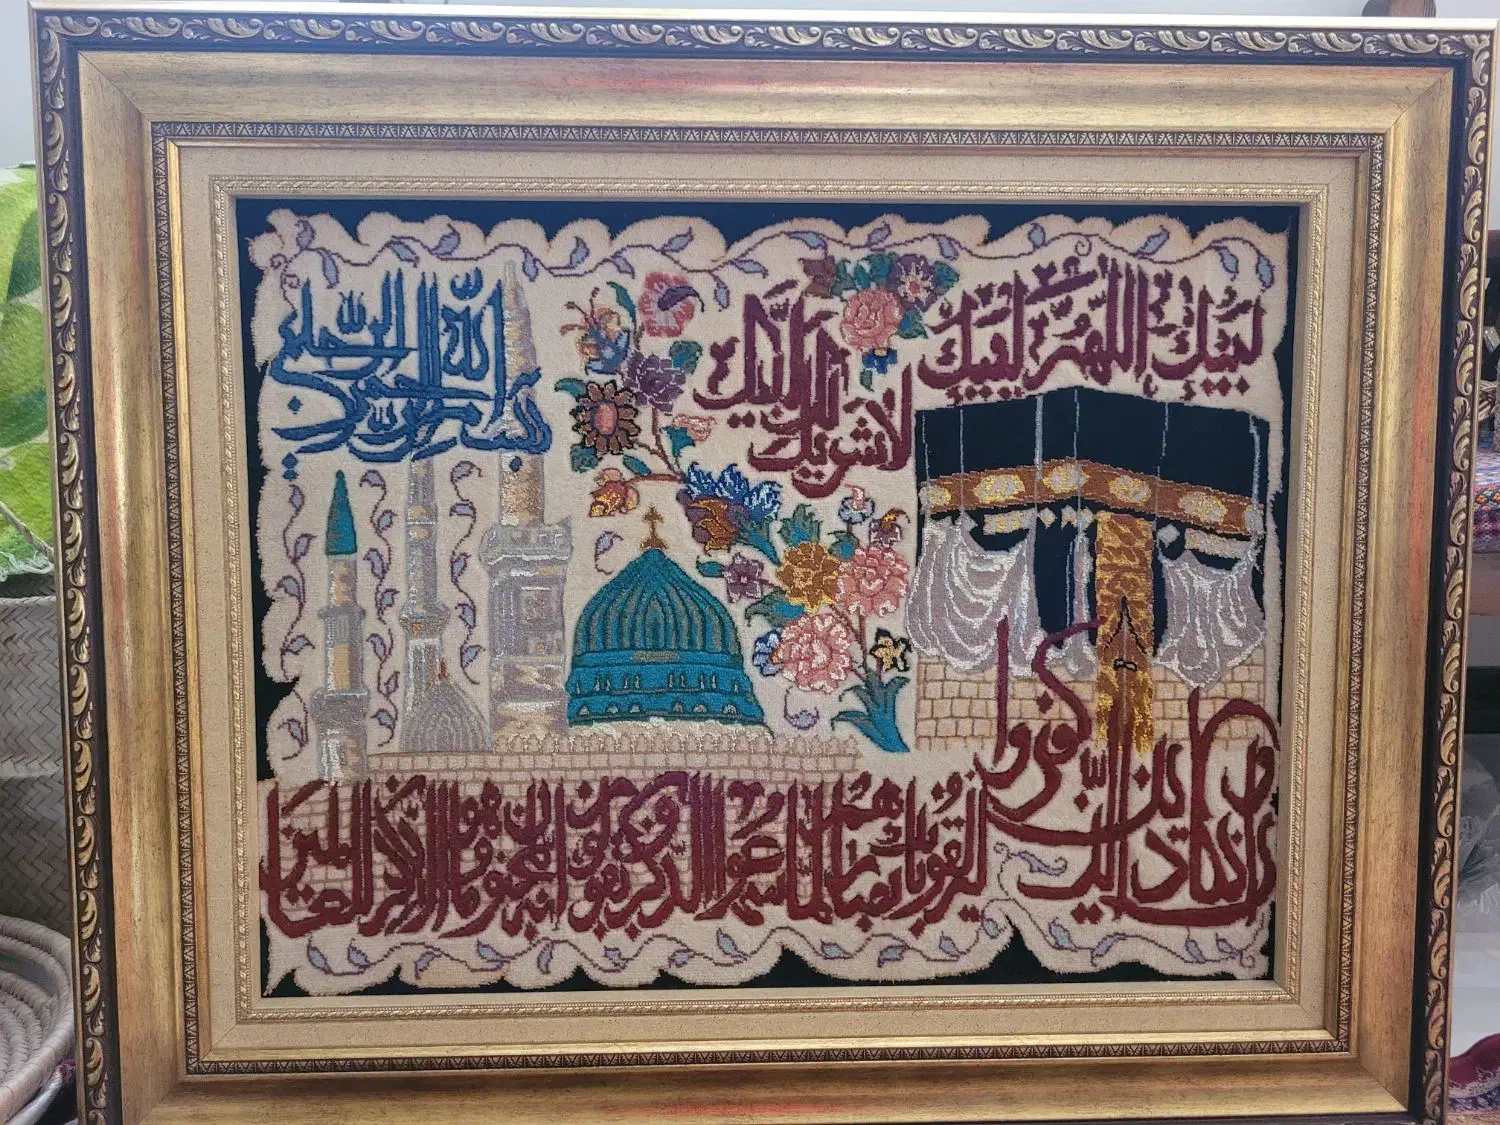 لبيك اللهم لبيك
لبيك لا شريك لك لبيك
بسم الله الرحمن الرحيم
وان يكاد الذين كفروا ليزلقونك بابصارهم لما سمعوا الذكر و يقولون انه لمجنون و ما هو الا ذكر للعالمين